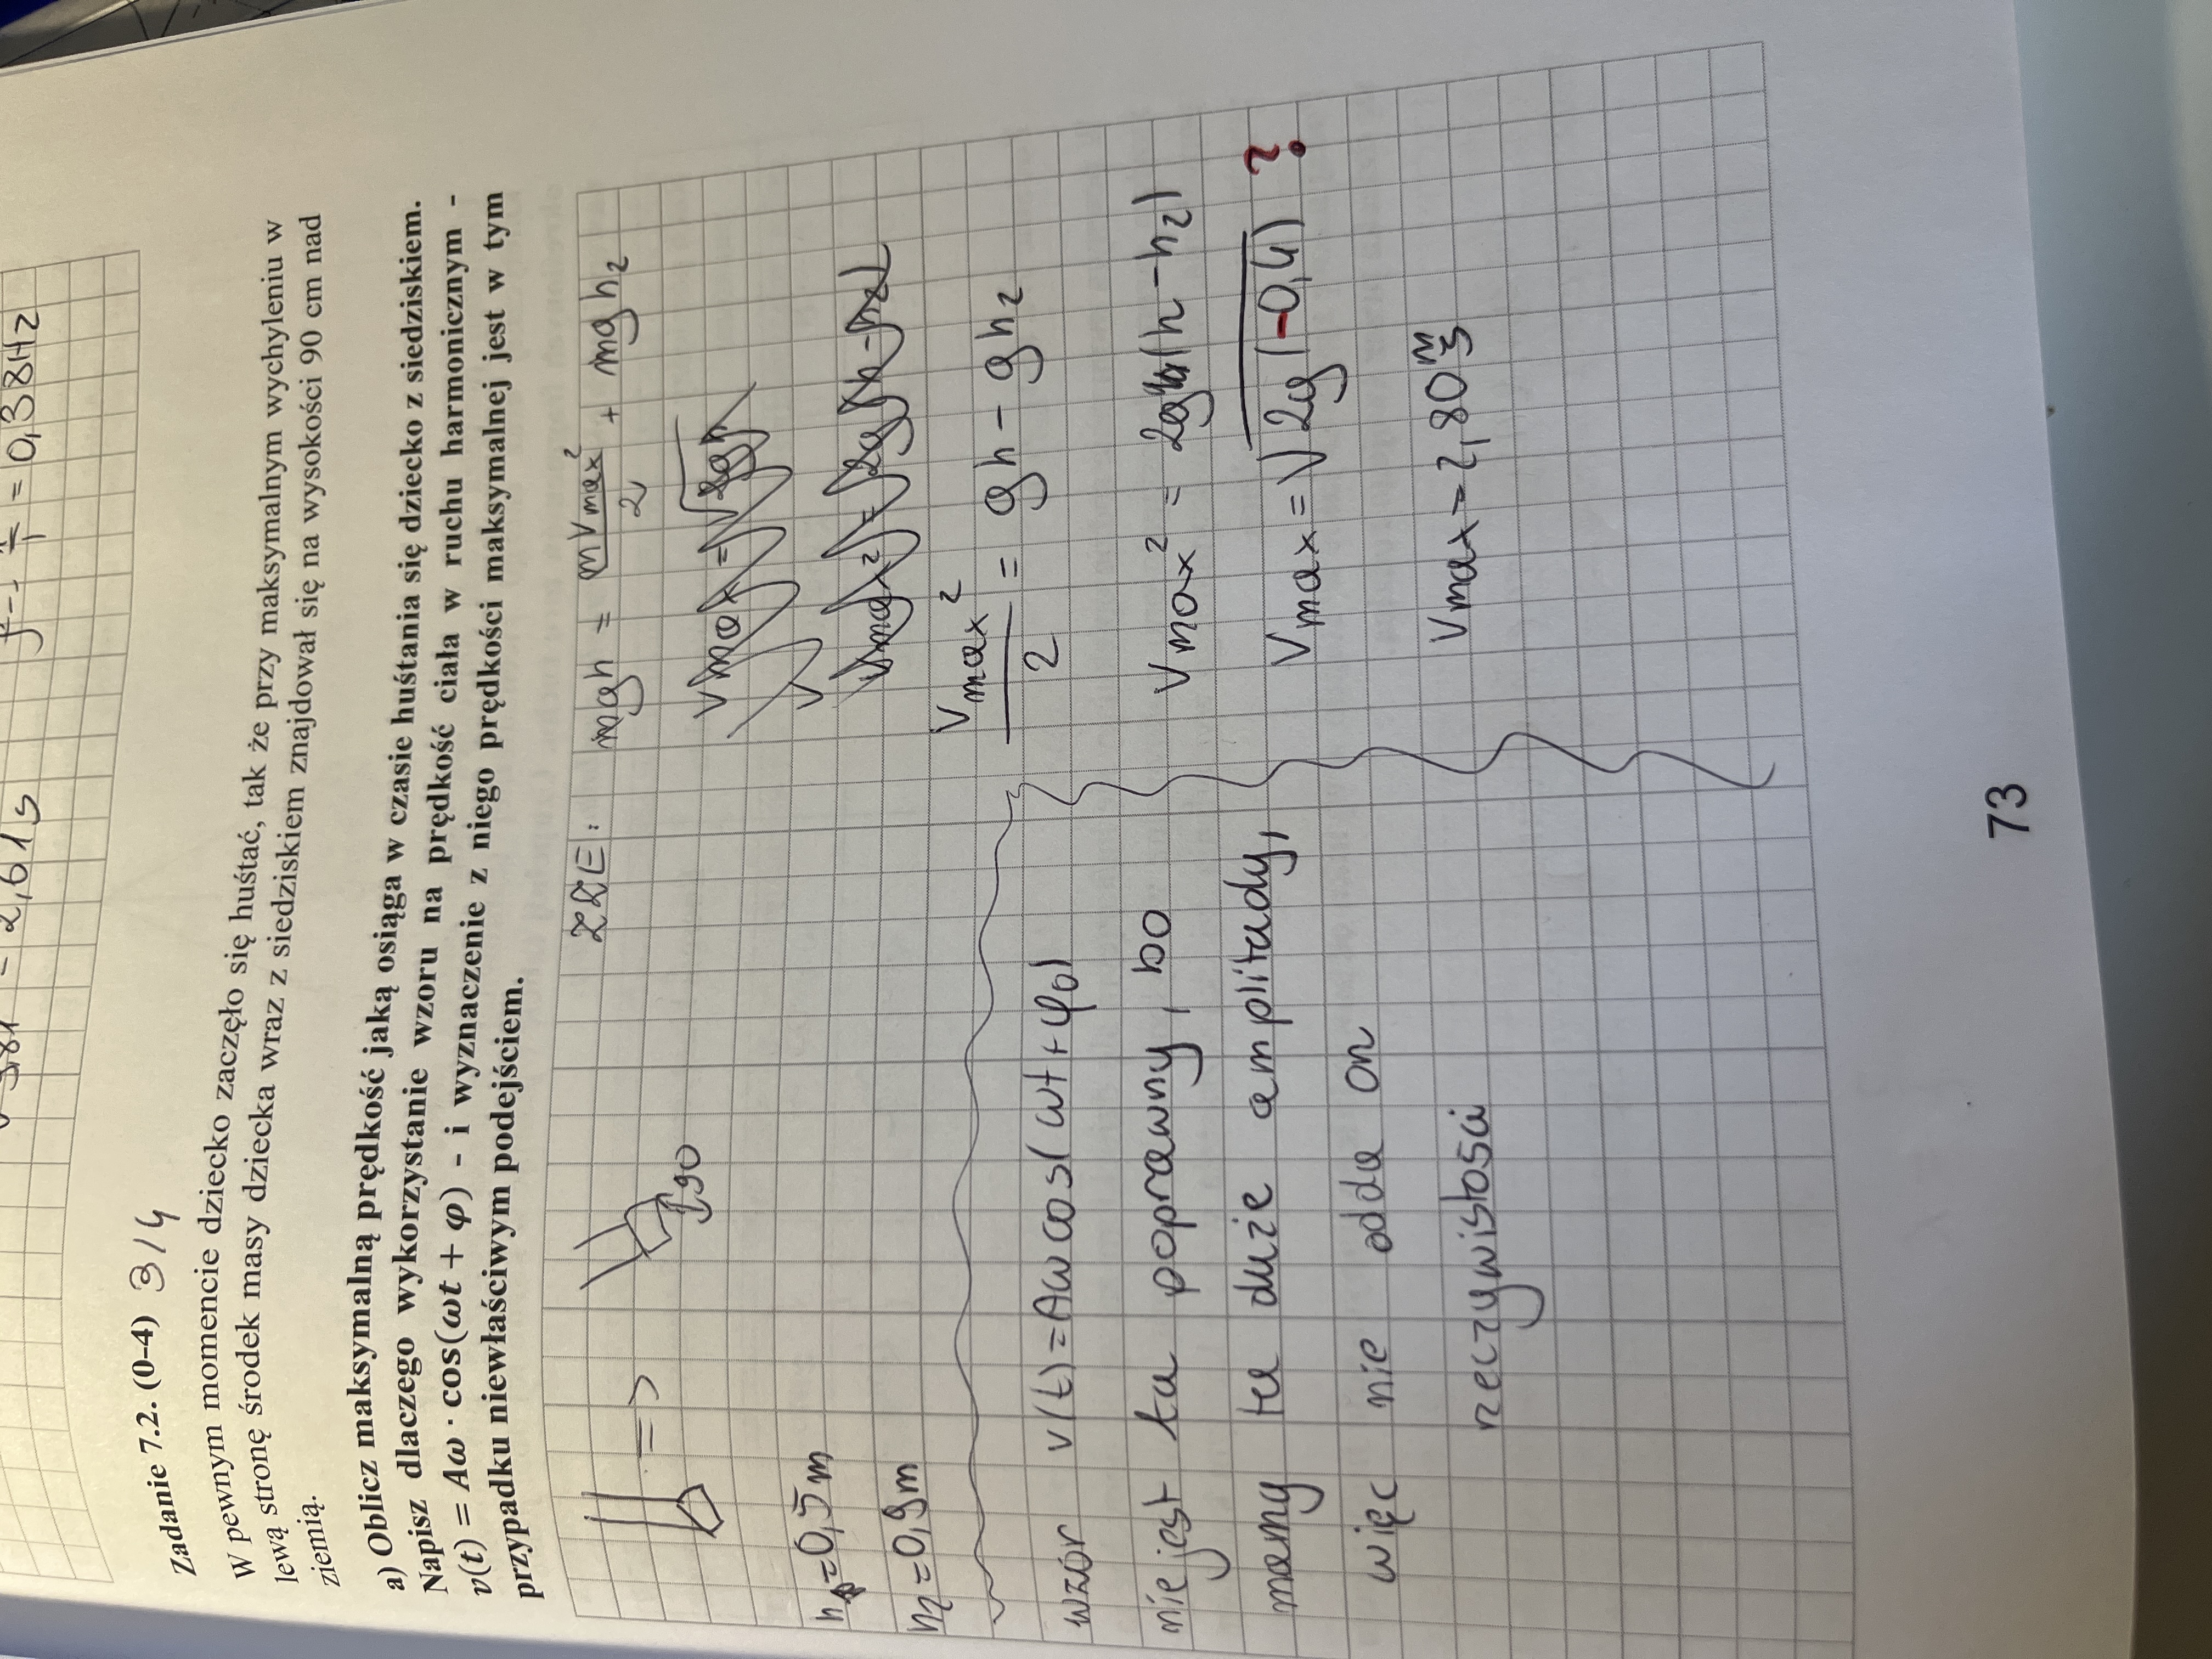 = 2,61s
= 0,38Hz
Zadanie 7.2. (0-4) 3/4
W pewnym momencie dziecko zaczęło się huśtać, tak że przy maksymalnym wychyleniu w
lewą stronę środek masy dziecka wraz z siedziskiem znajdował się na wysokości 90 cm nad
ziemią.
a) Oblicz maksymalną prędkość jaką osiąga w czasie huśtania się dziecko z siedziskiem.
Napisz dlaczego wykorzystanie wzoru na prędkość ciała w ruchu harmonicznym -
v(t) = Aω · cos(ωt + φ) - i wyznaczenie z niego prędkości maksymalnej jest w tym
przypadku niewłaściwym podejściem.
=>
90
h=0,5m
h2=0,9m
ZZE:
mgh = mVmax²/2 + mgh₂
Vmax = √2gh
Vmax² = 2g(h-h2)
Vmax²/2 = gh - gh₂
Vmax² = 2g(h-h₂)
Vmax = √2g(-0,4) ?
Vmax = 2,80 m/s
wzór v(t)=Aωcos(ωt+φ₀)
nie jest tu poprawny, bo
mamy tu duże amplitudy,
więc nie odda on
rzeczywistości
73